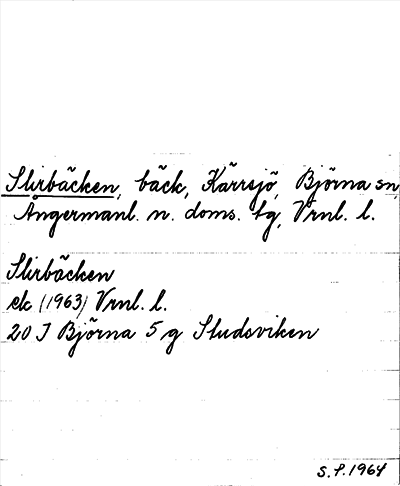 Slirbäcken, bäck, Kärrsjö, Björna sn,
Ångermanl. n. doms. tg, Vrnl. l.
Slirbäcken
ek (1963) Vrnl. l.
20 I Björna 5 g Studsviken
S.F. 1964